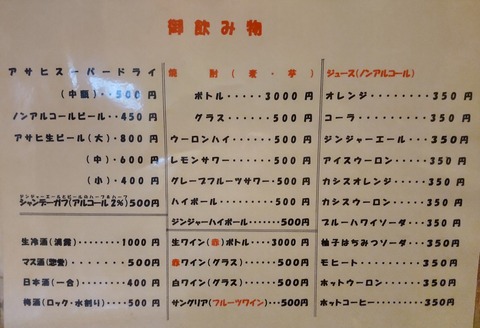 御飲み物
アサヒスーパードライ
(中瓶)・・500円
ノンアルコールビール・・450円
アサヒ生ビール(大)・800円
(中)・600円
(小)・400円
ジンジャーエールとビールのハーフ&ハーフ
シャンデーガフ(アルコール2%)500円
生冷酒(清露)・・・・・・・1000円
マス酒(惣誉)・・・・・・500円
日本酒(一合)・・・・・400円
梅酒(ロック・水割り)・・・500円
焼酎(麦・芋)
ボトル・・・・・3000円
グラス・・・・・500円
ウーロンハイ・・・・500円
レモンサワー・・・・500円
グレープフルーツサワー・500円
ハイボール・・・・・500円
ジンジャーハイボール・・・・・500円
生ワイン(赤)ボトル・・・3000円
赤ワイン(グラス)・・・500円
白ワイン(グラス)・・・500円
サングリア(フルーツワイン)・・500円
ジュース(ノンアルコール)
オレンジ・・・・・・・350円
コーラ・・・・・・・350円
ジンジャーエール・・・・350円
アイスウーロン・・・・350円
カシスオレンジ・・・・350円
カシスウーロン・・・・350円
ブルーハワイソーダ・・・350円
柚子はちみつソーダ・・350円
モヒート・・・・・・350円
ホットウーロン・・・・350円
ホットコーヒー・・・・350円